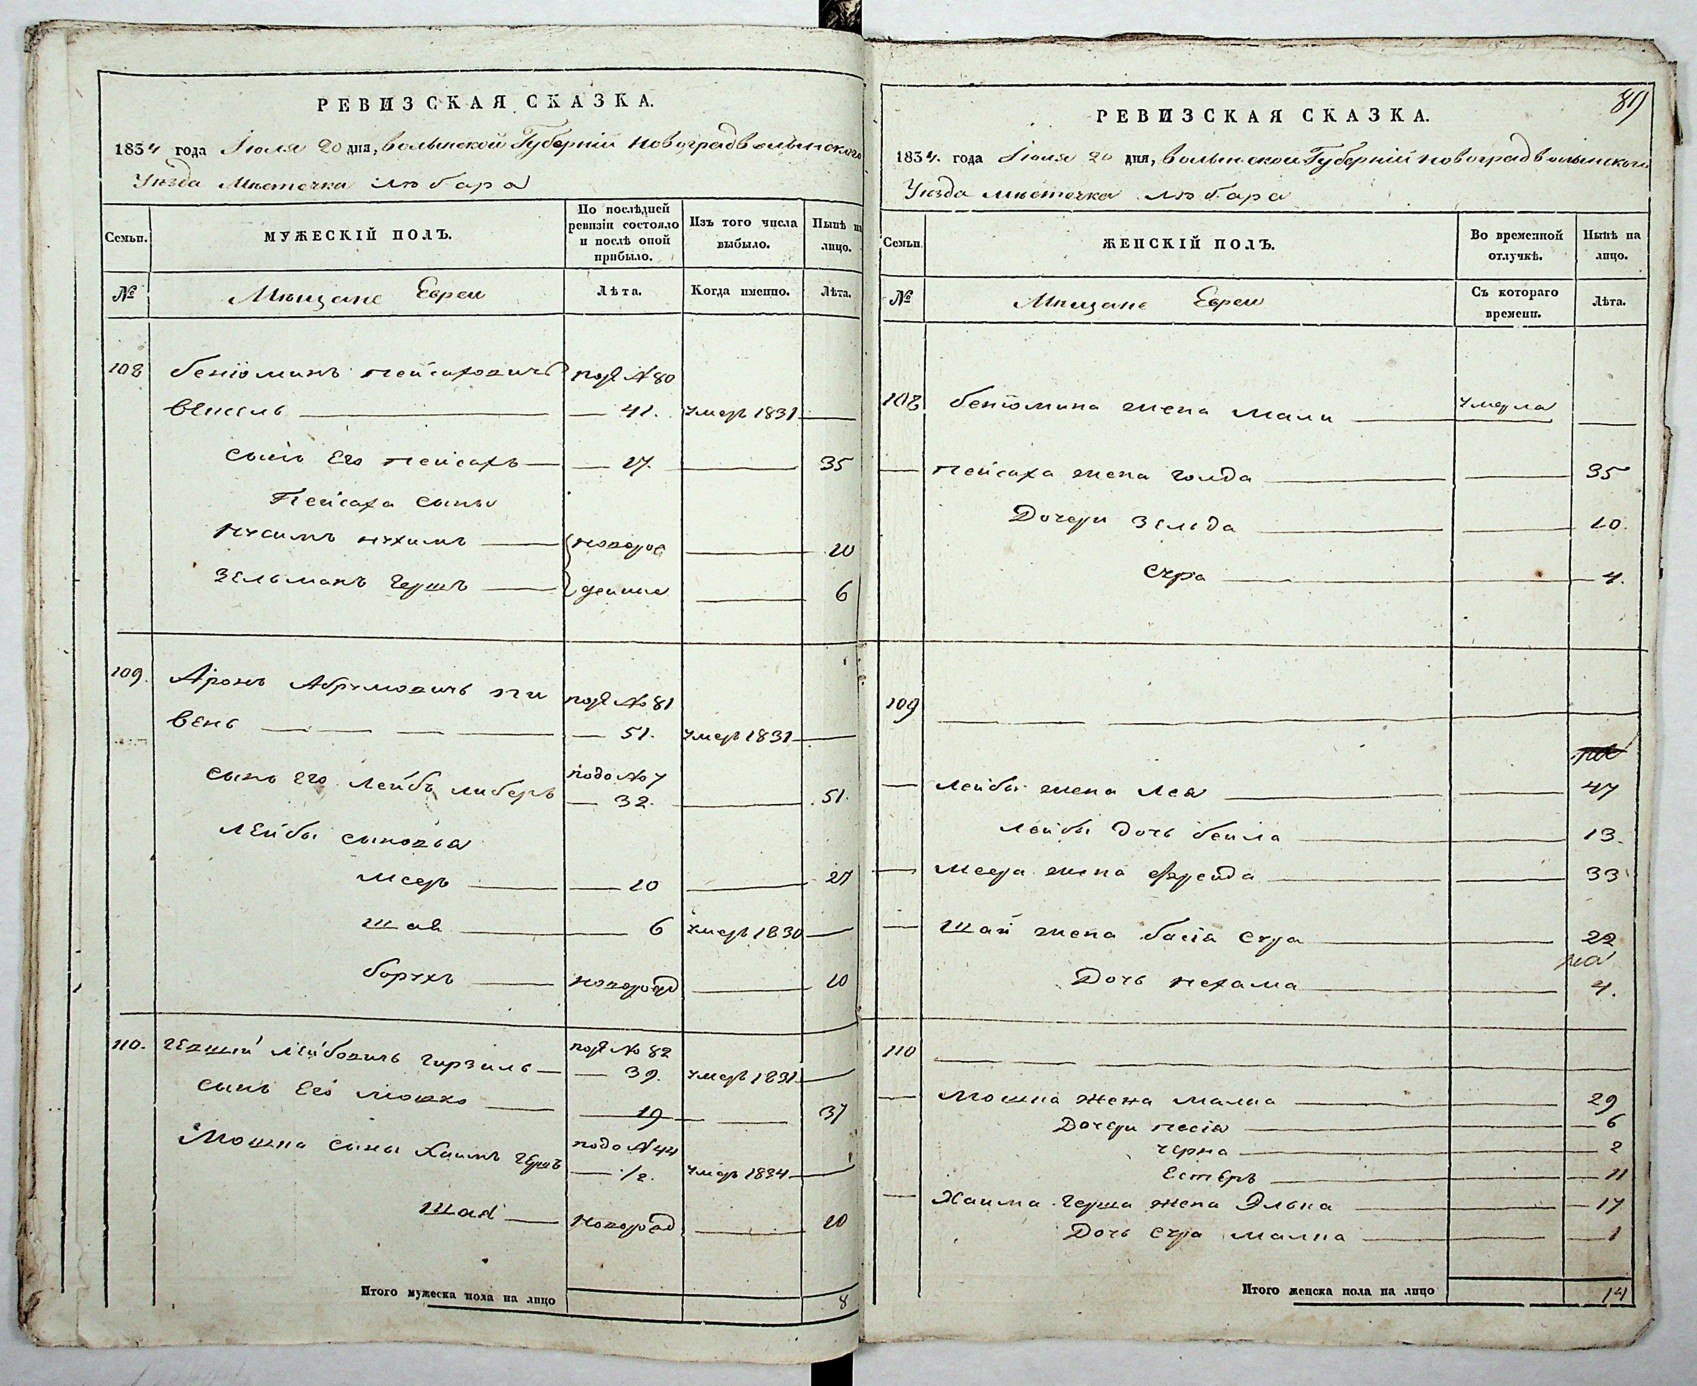 РЕВИЗСКАЯ СКАЗКА.
1834 года Июля 20 дня, Волынской Губерніи Новоградволынского
Уезда Местечка Любара
Семьи.
МУЖЕСКІЙ ПОЛЪ.
По послѣдней ревизіи состояло и послѣ оной прибыло.
Изъ того числа выбыло.
Нынѣ на лицо.
№
Мещане Евреи
Лѣта.
Когда именно.
Лѣта.
108 Бенiоминъ Пейсаховичъ под № 80
Венгель 41. умеръ 1831
сынъ Его Пейсахъ 17. 35
Пейсаха сыны
Нусимъ Нухимъ новорож 10
Зельманъ Гершъ денные 6
109. Аронъ Абрумовичъ Пи под № 81
вень 51. умеръ 1831
сынъ его Лейбъ Либеръ подо № 7 32. 51.
Лейбы сыновья
Мееръ 10 27
Шая 6 умеръ 1830
Борухъ новорожд 10
110. Лейбовичъ под № 82
39. умеръ 1831
сынъ Его Мошко 19 37
Мошка сыны Хаимъ Гершъ подо № 44 1/2. умеръ 1834
Шая новорожд 10
Итого мужеска пола на лицо 8
89
РЕВИЗСКАЯ СКАЗКА.
1834. года Июля 20 дня, Волынской Губерніи Новоградволынского
Уезда Местечка Любара
Семьи.
ЖЕНСКІЙ ПОЛЪ.
Во временной отлучкѣ.
Нынѣ на лицо.
№
Мещане Евреи
Съ котораго времени.
Лѣта.
108 Бенiомина жена Мали умерла
Пейсаха жена Голда 35
Дочери Зельда 10.
Сура 4.
109
Лейбы жена Лея 47
Лейбы дочь Бейла 13.
Меера жена Фрейда 33
Шаи жена Бася Сура 22
Дочь Нехама 4.
110
Мошка жена Малка 29
Дочери Песія 6
Черна 2
Естеръ 11
Хаима Герша жена Элька 17
Дочь Сура Малка 1
Итого женска пола на лицо 14